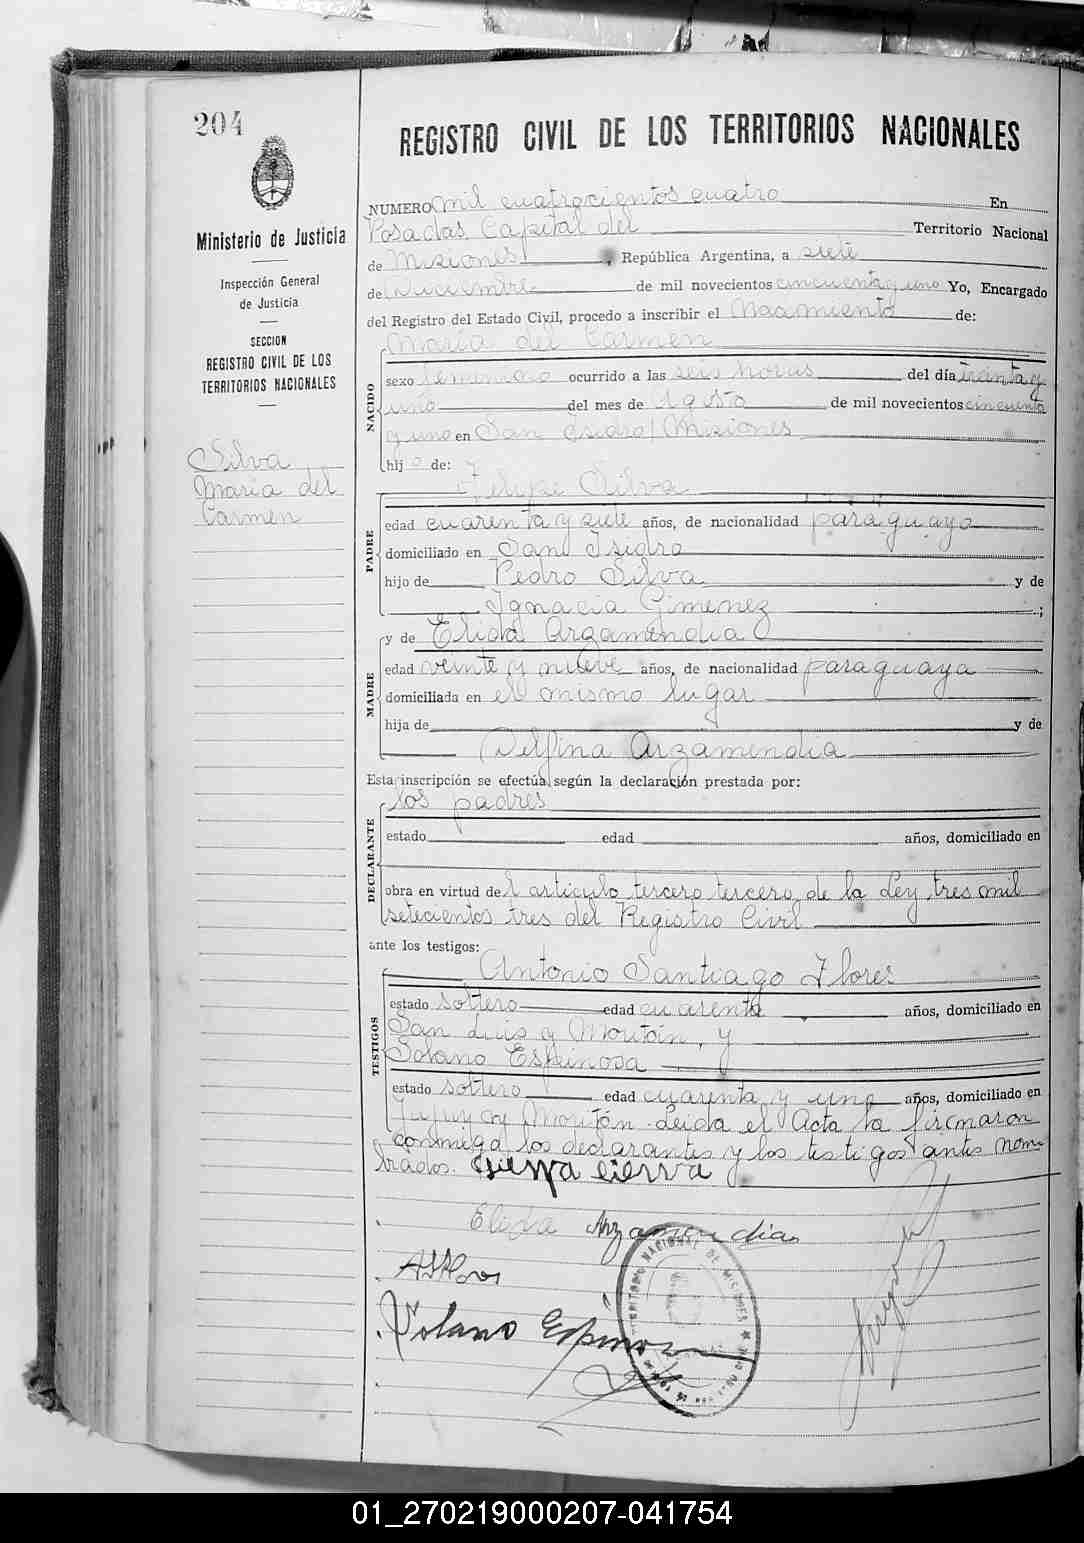 204
REGISTRO CIVIL DE LOS TERRITORIOS NACIONALES
Ministerio de Justicia
Inspección General
de Justicia
SECCION
REGISTRO CIVIL DE LOS
TERRITORIOS NACIONALES
Silva
Maria del
Carmen
NUMERO mil cuatrocientos cuatro En
Posadas Capital del Territorio Nacional
de Misiones, República Argentina, a siete
de Diciembre de mil novecientos cincuenta y uno Yo, Encargado
del Registro del Estado Civil, procedo a inscribir el Nacimiento de:
NACIDO
Maria del Carmen
sexo femenino ocurrido a las seis horas del día treinta y
uno del mes de Agosto de mil novecientos cincuenta
y uno en San Isidro Misiones
hij o de:
PADRE
Felipe Silva
edad cuarenta y siete años, de nacionalidad paraguayo
domiciliado en San Isidro
hijo de Pedro Silva y de
Ignacia Gimenez ;
MADRE
y de Elida Arzamendia
edad veinte y nueve años, de nacionalidad paraguaya
domiciliada en el mismo lugar
hija de y de
Delfina Arzamendia
Esta inscripción se efectúa según la declaración prestada por:
DECLARANTE
los padres
estado edad años, domiciliado en
obra en virtud de l articulo tercero tercero de la Ley tres mil
setecientos tres del Registro Civil
ante los testigos:
TESTIGOS
Antonio Santiago Flores
estado soltero edad cuarenta años, domiciliado en
San Luis y Moritán, y
Solano Espinosa
estado soltero edad cuarenta y uno años, domiciliado en
Jujuy y Moritán. Leida el Acta la firmaron
conmigo los declarantes y los testigos antes nom
brados.
Elida Arzamendia
ASFlores
Solano Espinosa
TERRITORIO NACIONAL DE MISIONES
01_270219000207-041754